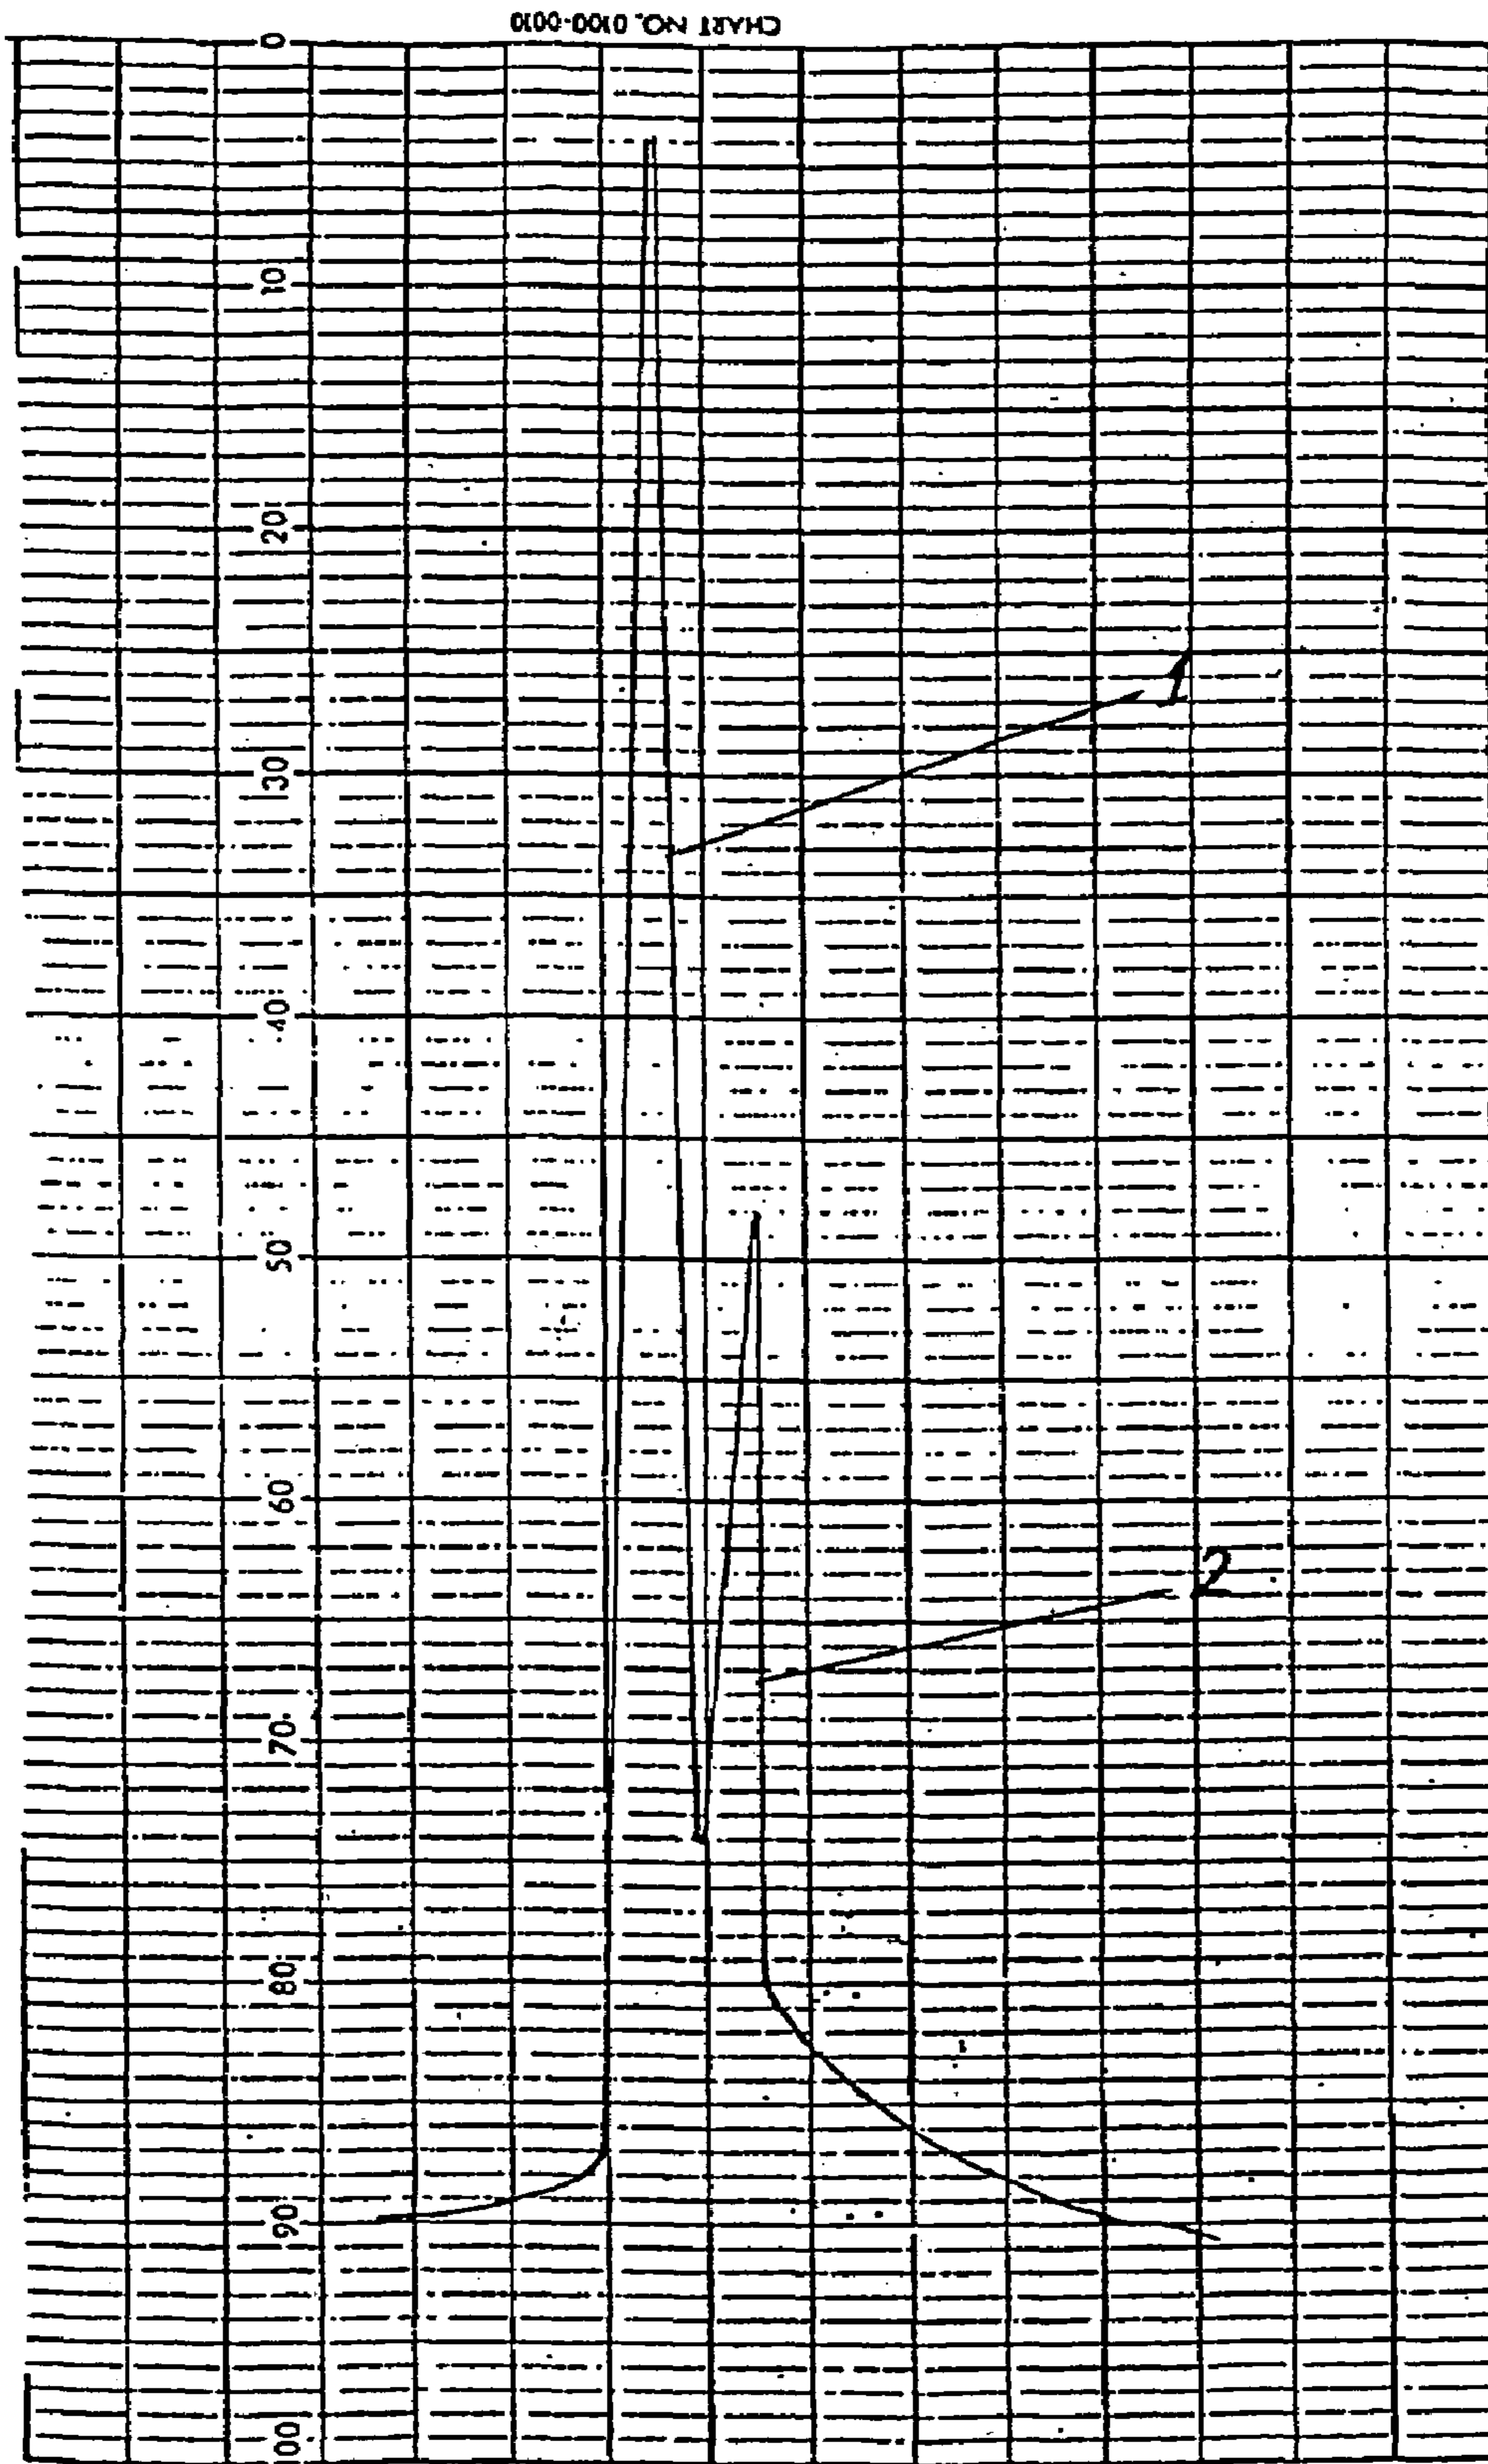 CHART NO. 0100-0010
0
10
20
1
30
40
50
60
2
70
80
90
100